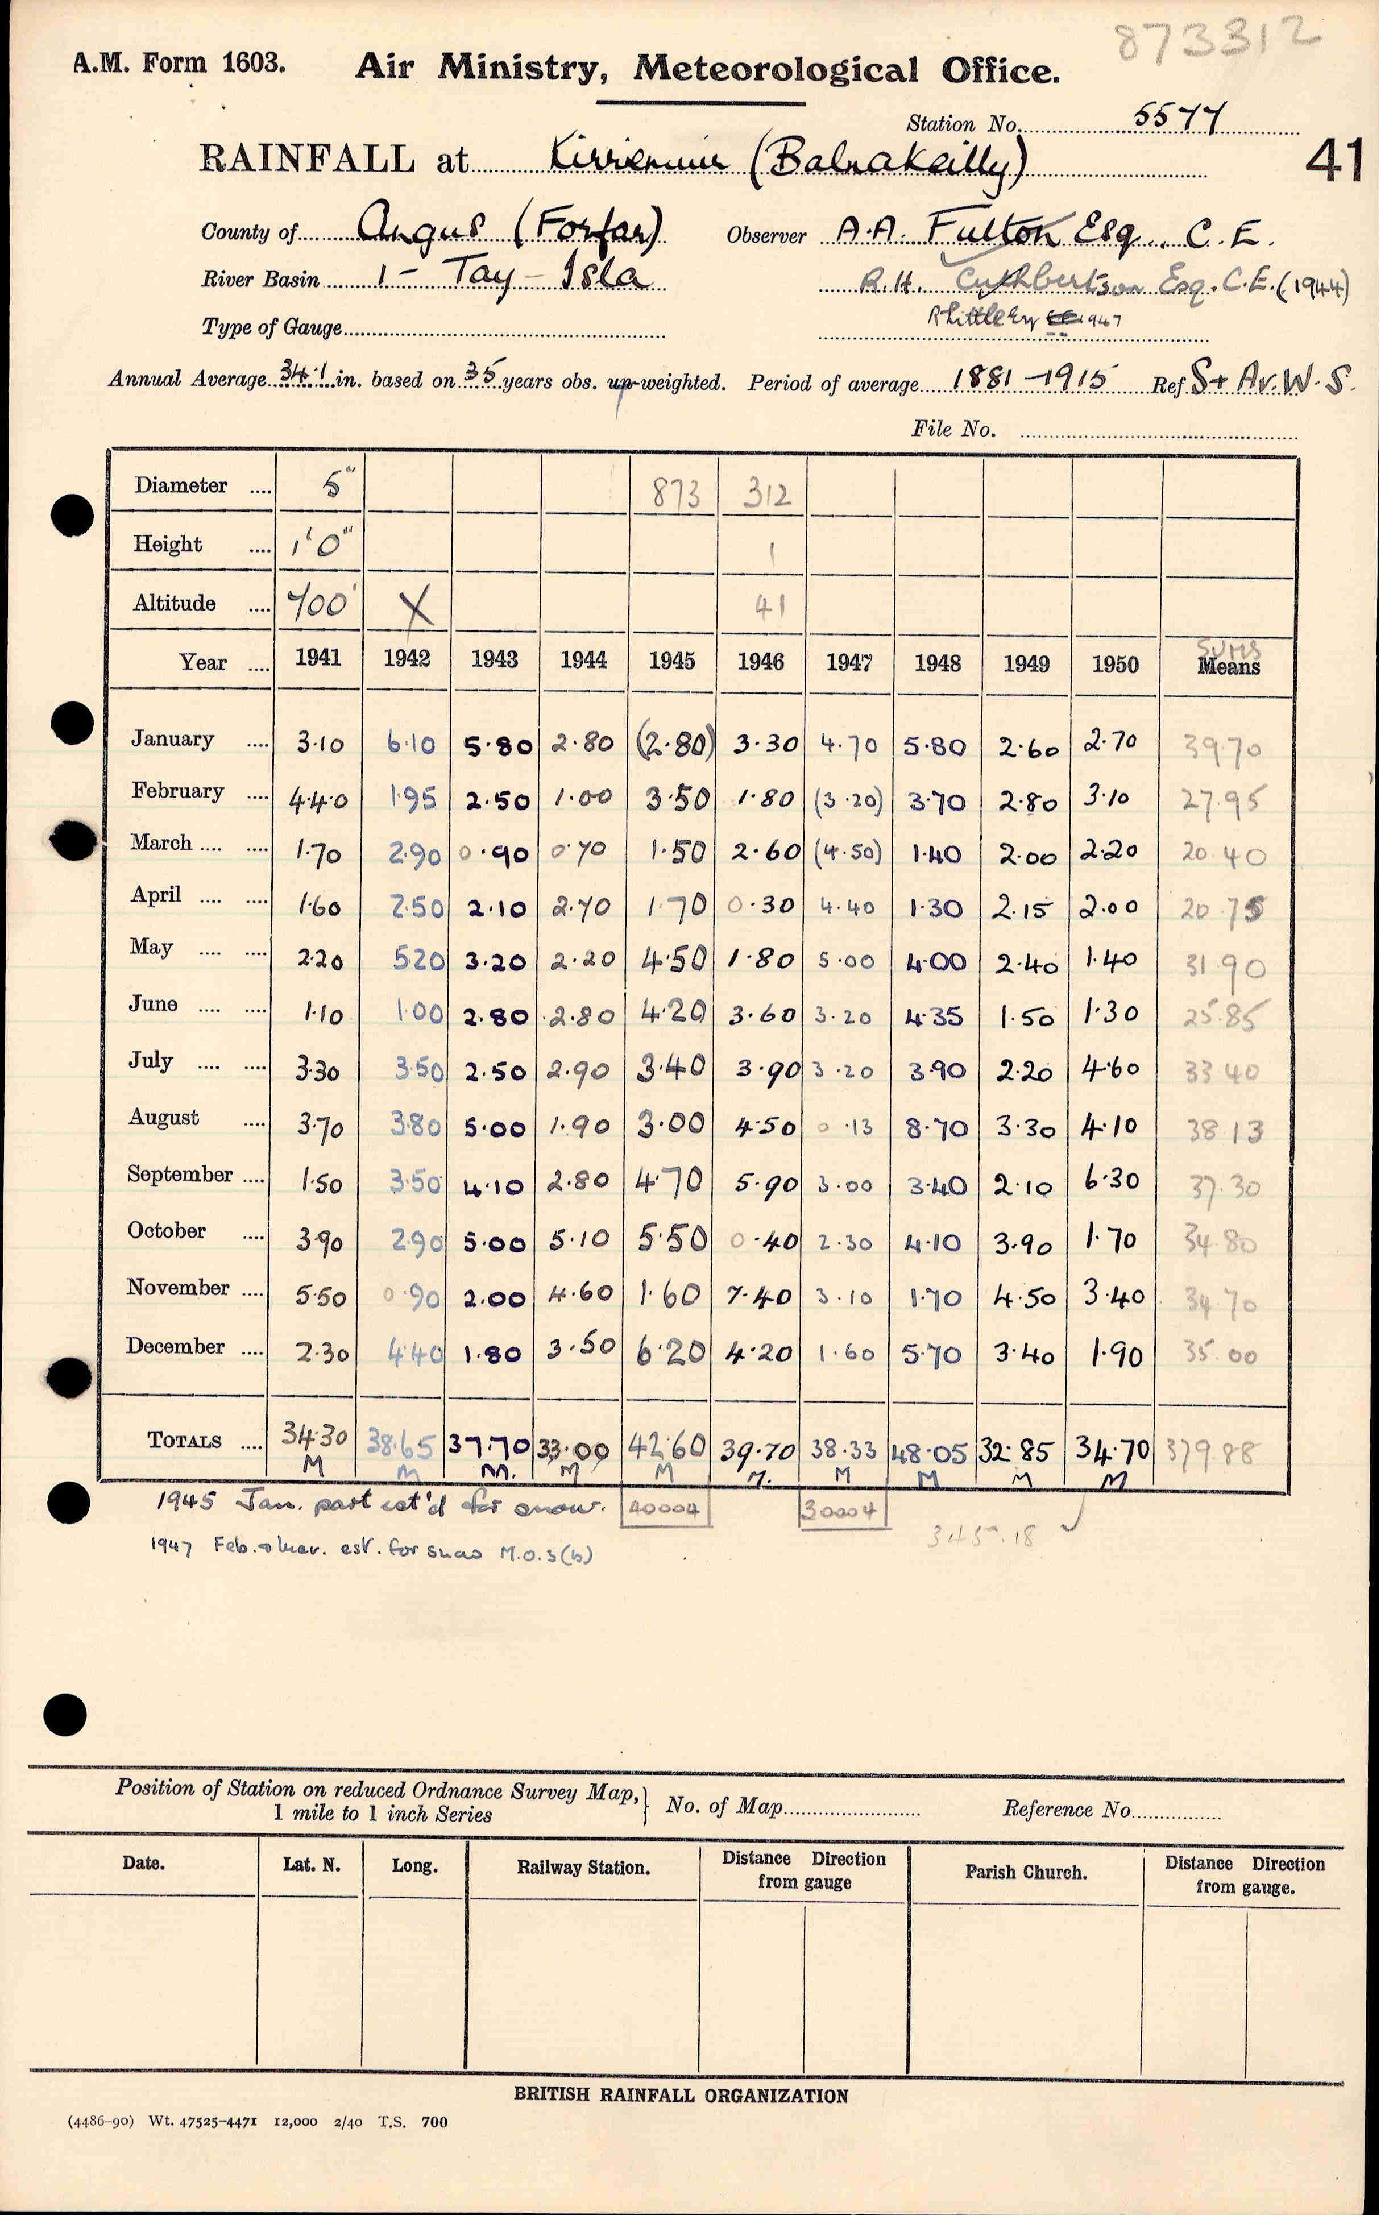 873312
A.M. Form 1603. Air Ministry, Meteorological Office.
Station No. 5577
RAINFALL at Kirriemuir (Balnakeilly) 41
County of Angus (Forfar) Observer A.A. Fulton Esq. C.E.
River Basin 1 - Tay - Isla R.H. Cuthbertson Esq. C.E. (1944)
Type of Gauge R Little Esq 1947
Annual Average 34.1 in. based on 35 years obs. up-weighted. Period of average 1881-1915 Ref St Av. W. S.
File No.
Diameter .... 5" 873 312
Height .... 1'0" 1
Altitude .... 700' X 41
Sums
Year .... 1941 1942 1943 1944 1945 1946 1947 1948 1949 1950 Means
January .... 3.10 6.10 5.80 2.80 (2.80) 3.30 4.70 5.80 2.60 2.70 39.70
February .... 4.40 1.95 2.50 1.00 3.50 1.80 (3.20) 3.70 2.80 3.10 27.95
March .... .... 1.70 2.90 0.90 0.70 1.50 2.60 (4.50) 1.40 2.00 2.20 20.40
April .... .... 1.60 2.50 2.10 2.70 1.70 0.30 4.40 1.30 2.15 2.00 20.75
May .... .... 2.20 5.20 3.20 2.20 4.50 1.80 5.00 4.00 2.40 1.40 31.90
June .... .... 1.10 1.00 2.80 2.80 4.20 3.60 3.20 4.35 1.50 1.30 25.85
July .... .... 3.30 3.50 2.50 2.90 3.40 3.90 3.20 3.90 2.20 4.60 33.40
August .... 3.70 3.80 5.00 1.90 3.00 4.50 0.13 8.70 3.30 4.10 38.13
September .... 1.50 3.50 4.10 2.80 4.70 5.90 3.00 3.40 2.10 6.30 37.30
October .... 3.90 2.90 5.00 5.10 5.50 0.40 2.30 4.10 3.90 1.70 34.80
November .... 5.50 0.90 2.00 4.60 1.60 7.40 3.10 1.70 4.50 3.40 34.70
December .... 2.30 4.40 1.80 3.50 6.20 4.20 1.60 5.70 3.40 1.90 35.00
TOTALS .... 34.30 38.65 37.70 33.00 42.60 39.70 38.33 48.05 32.85 34.70 379.88
M M M. M M M. M M M M
1945 Jan. part est'd for snow. 40004 30004
345.18
1947 Feb. & Mar. est. for snow M.O.3(b)
Position of Station on reduced Ordnance Survey Map,
1 mile to 1 inch Series } No. of Map Reference No.
Date. Lat. N. Long. Railway Station. Distance Direction from gauge Parish Church. Distance Direction from gauge.
BRITISH RAINFALL ORGANIZATION
(4486-90) Wt. 47525-4471 12,000 2/40 T.S. 700